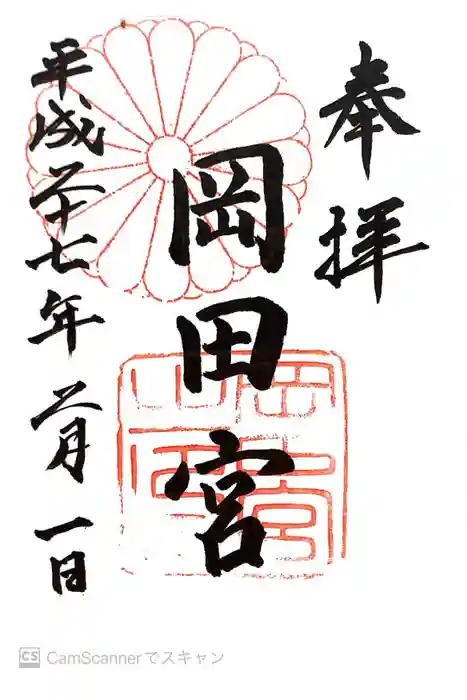 奉拝
岡田宮
平成二十七年二月一日
CS CamScannerでスキャン